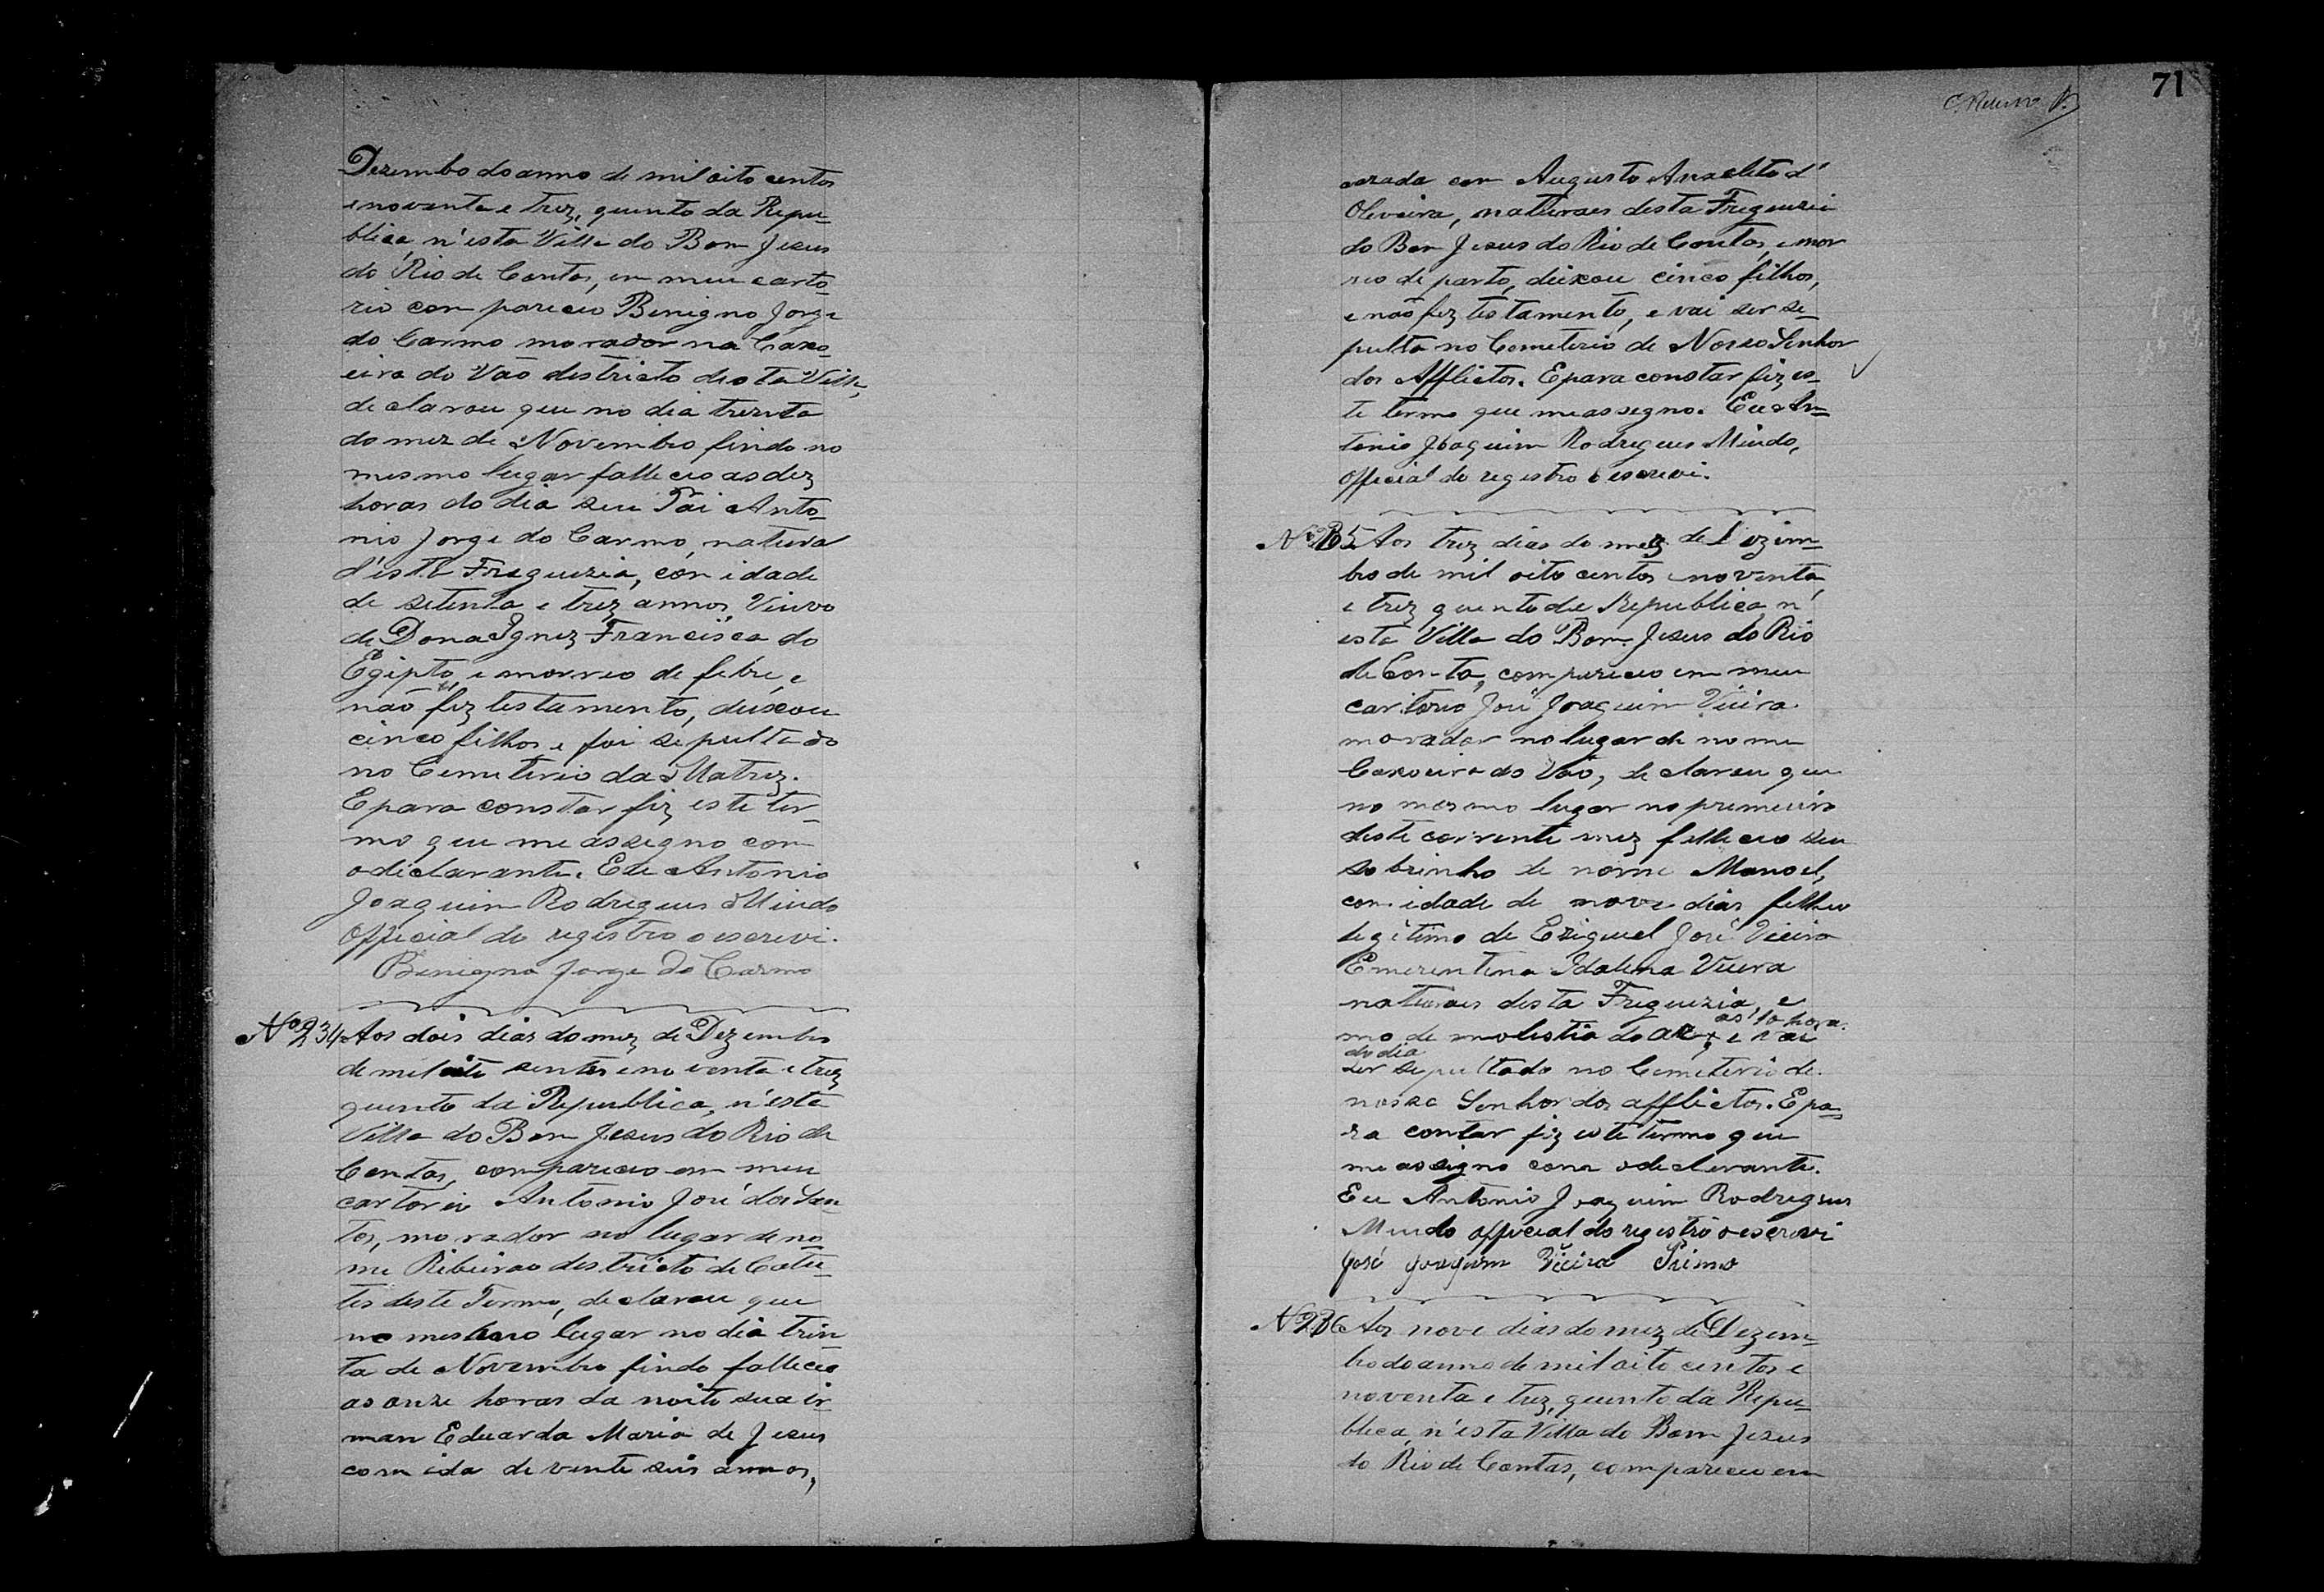 Dezembo do anno de mil oito centos
e noventa e trez, quinto da Repu-
blica, n'esta Villa do Bom Jesus
do Rio de Contas, em meu carto-
rio compareceo Benigno Jorge
do Carmo morador na Caxo-
eira do Vão districto desta Villa,
declarou que no dia trinta
do mez de Novembro findo no
mesmo lugar falleceo as dez
horas do dia seu Pai Anto-
nio Jorge do Carmo, natural
d'esta Freguezia, com idade
de setenta e trez annos, Viuvo
de Dona Ignez Francisca do
Egipto, e morreo de febre, e
não fez testamento, deixou
cinco filhos, e foi sepultado
no Cemiterio da Matriz.
E para constar fiz este ter-
mo que me assegno com
o declarante. Eu Antonio
Joaquim Rodrigues Miudo
Official do registro o escrevi.
Benigno Jorge do Carmo
Nº 234 Aos dois dias do mez de Dezembro
de mil oito centos e noventa e trez
quinto da Republica, n'esta
Villa do Bom Jesus do Rio de
Contas, compareceo em meu
cartorio Antonio José dos San-
tos, morador no lugar de no-
me Ribeirao destricto de Catu-
les deste Termo, declarou que
no mesmo lugar no dia trin
ta de Novembro findo falleceo
as onze horas da noite sua ir-
man Eduarda Maria de Jesus
com ida de vente seis annos,
71
cazada com Augusto Anacleto d'
Oliveira, naturaes desta Freguzia
do Bom Jesus do Rio de Contas, e mor
reo de parto, deixou cinco filhos,
e não fez testamento, e vai ser se-
pulta no Cemeterio de Nosso Senhor
dos Afflictos. E para constar fiz es-
te termo que me assegno. Eu An-
tonio Joaquim Rodrigues Miudo,
official do registro o escrevi.
Nº 235 Aos trez dias do mez de Dezem-
bro de mil oito centos e noventa
e trez quinto da Republica, n'
esta Villa do Bom Jesus do Rio
de Contas, compareceo em meu
cartorio José Joaquim Vieira
morador no lugar de nome
Caxoeira do Vão, declarou que
no mesmo lugar no premeiro
deste corrente mez falleceo seu
sobrinho de nome Manoel,
com idade de nove dias filho
legitimo de Eziquel José Vieira
Emerentina Idalina Vieira
naturaes desta Freguezia, e
as 10 hora
mo de molestia do ar, e vai
do dia
ser sepultado no Cemeterio de
nosso Senhor dos afflictos. E pa-
ra contar fiz este termo que
me assigno com o declerante.
Eu Antonio Joaquim Rodrigues
Miudo official do registro o escrevi
José Joaquim Vieira Primo
Nº 236 Aos nove dias do mez de Dezem-
bro do anno de mil oito centos e
noventa e trez, quinto da Repu-
blica, n'esta Villa do Bom Jesus
do Rio de Contas, compareceu em